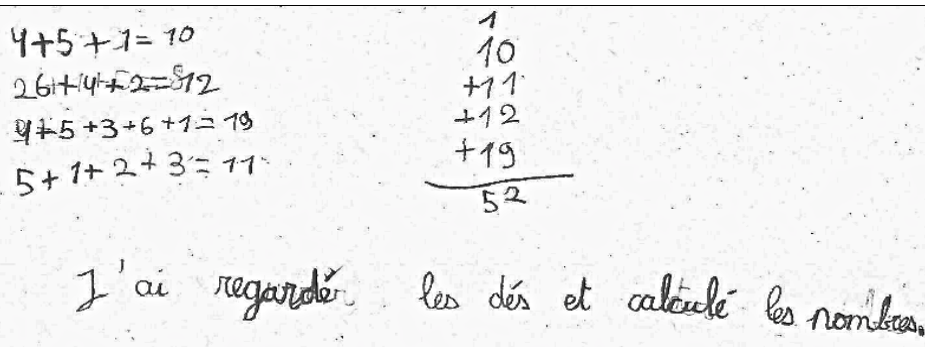 4+5+1=10
6+4+2=12
4+5+3+6+1=19
5+1+2+3=11
1
10
+11
+12
+19
52
J'ai regardér les dés et calculé les nombres.